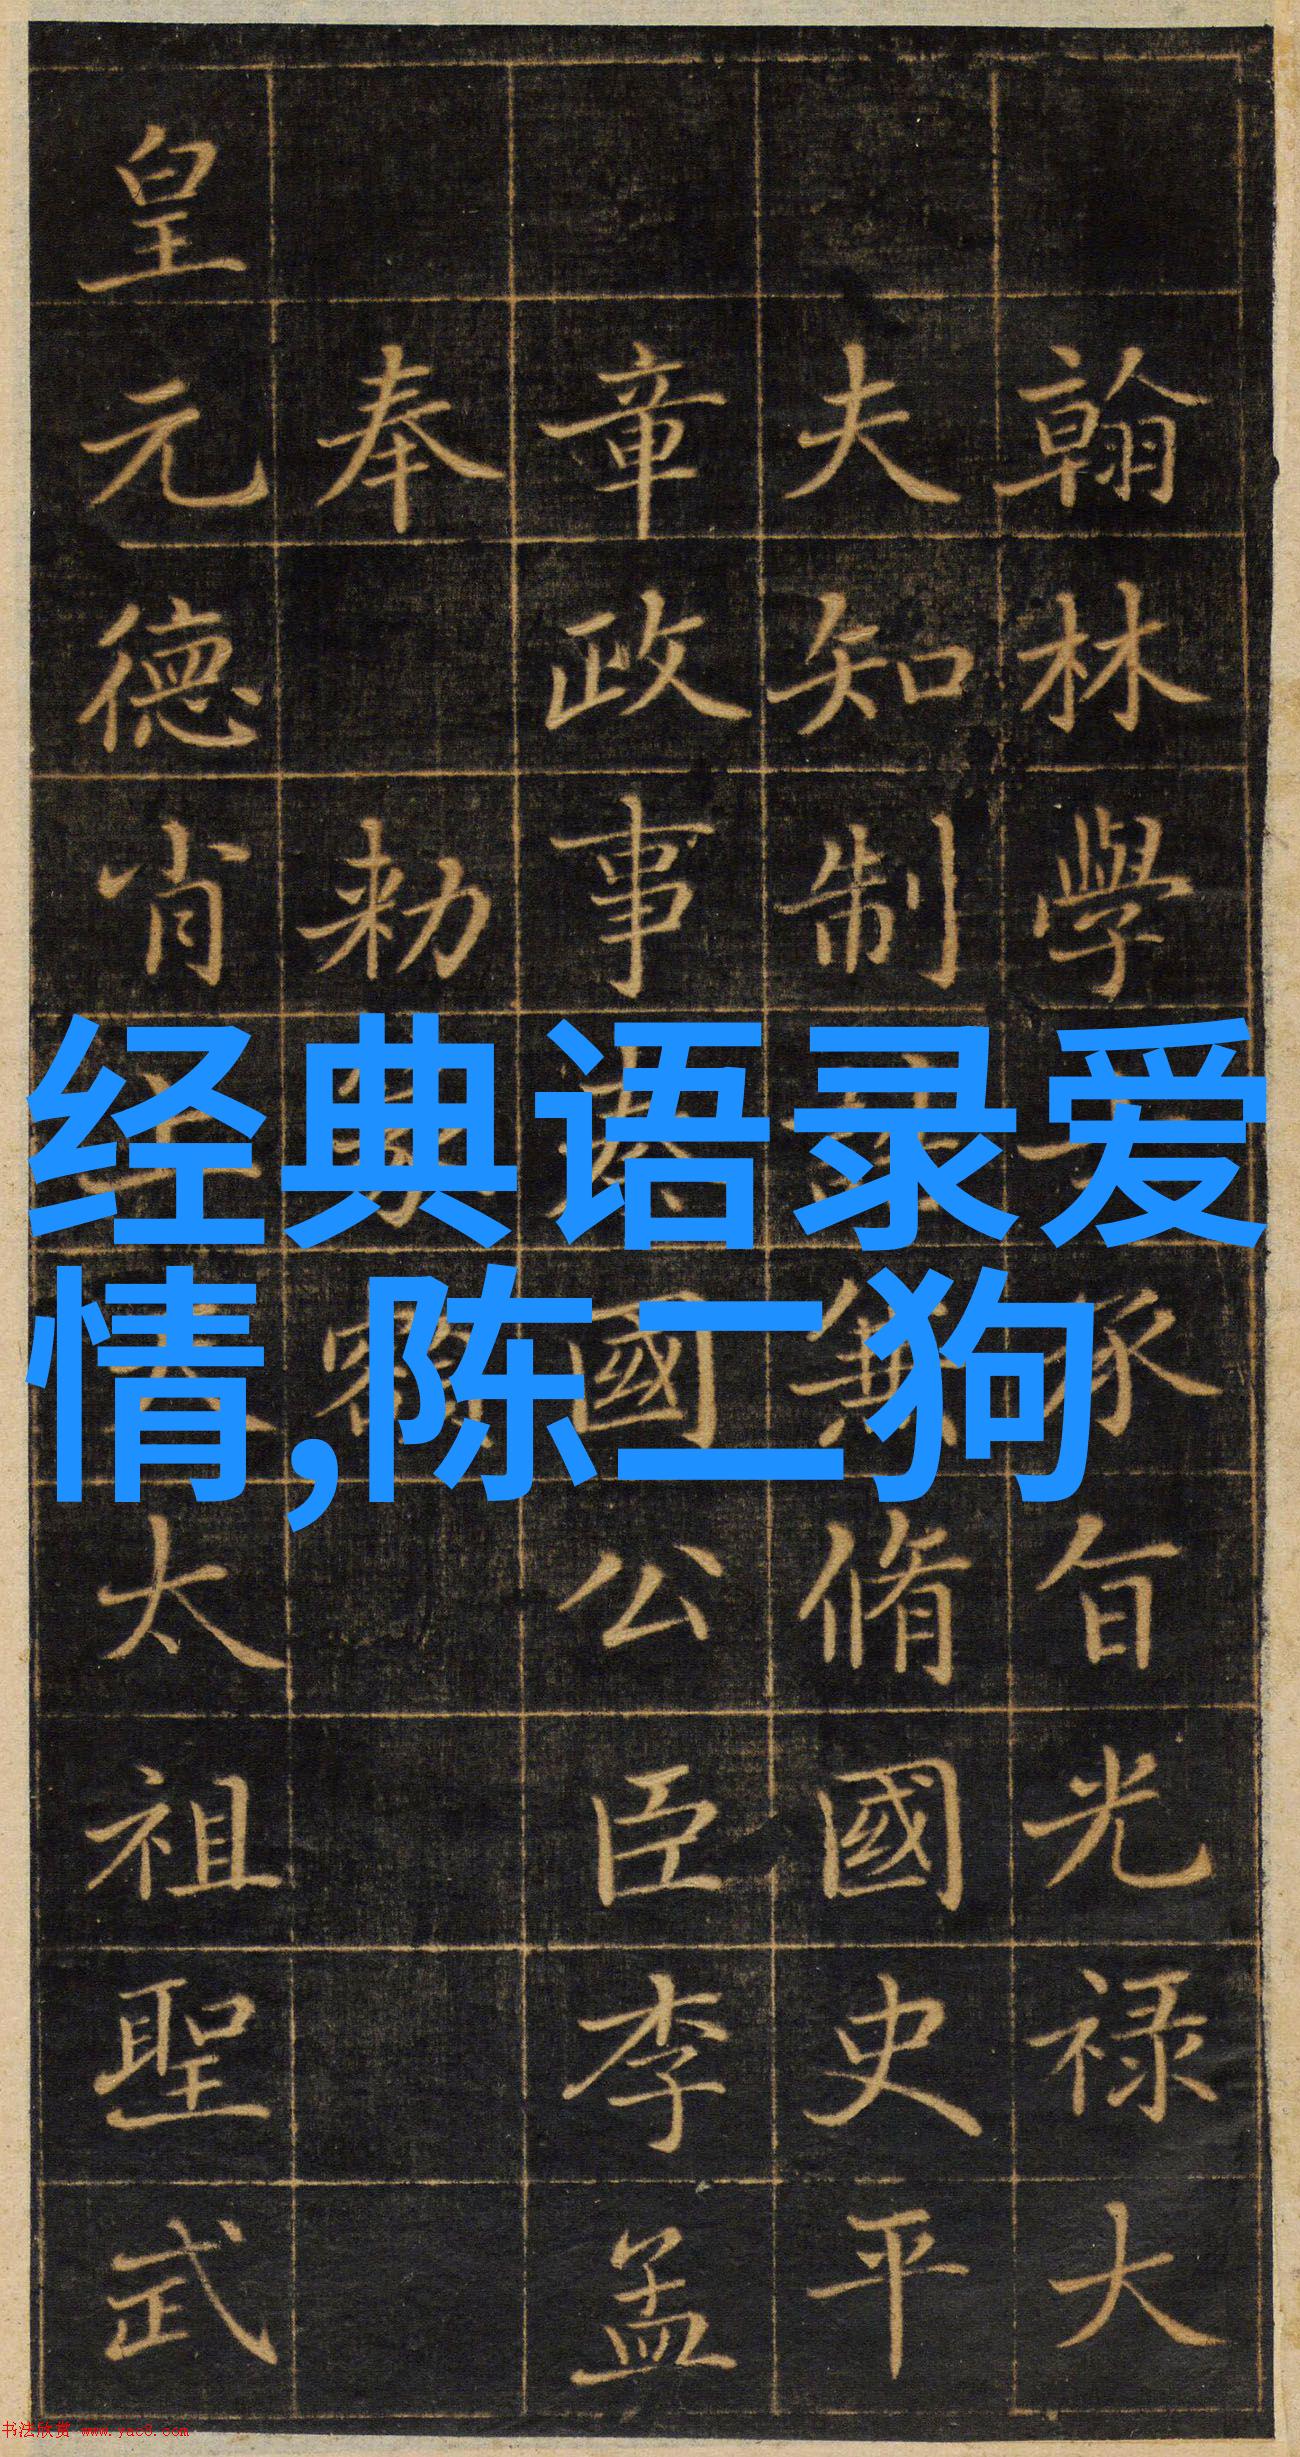 翰林學承旨光禄大
夫知制兼脩國史平
章政事國公臣李孟
奉 勅
皇元德肖太祖聖武
经典语录爱
情,陈二狗
书法欣赏 www.yac8.com